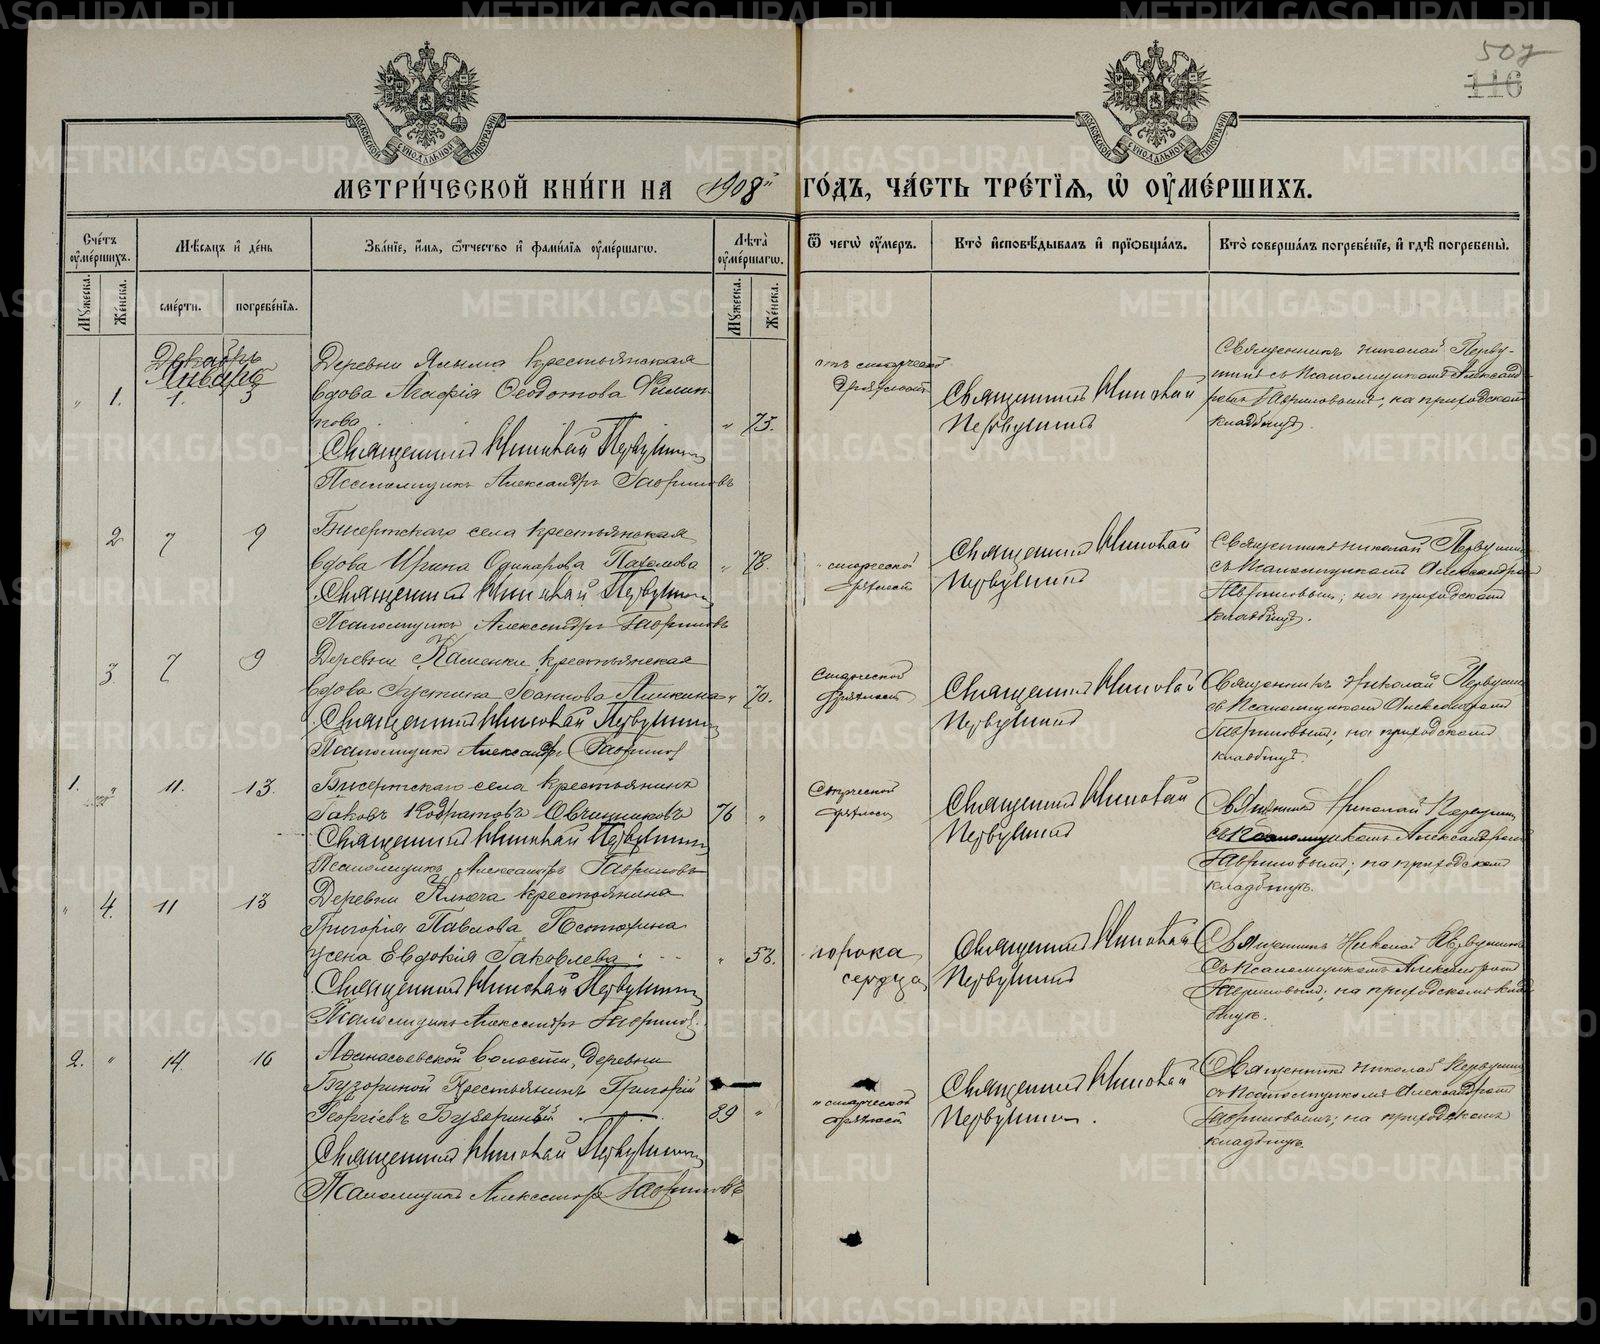 507
116
МОСКОВСКОЙ СѴНОДАЛЬНОЙ ТИПОГРАФІИ
МОСКОВСКОЙ СѴНОДАЛЬНОЙ ТИПОГРАФІИ
МЕТРИ́ЧЕСКОЙ КНИ́ГИ НА 1908й ГО́ДЪ, ЧА́СТЬ ТРЕ́ТІѦ, Ѡ҆ ОУ҆МЕ́РШИХЪ.
Сче́тъ оу҆ме́ршихъ.
Мѣ́сяцъ и҆ де́нь
Зва́нїе, и҆́мя, ѻ҆́тчество и҆ фами́лїя оу҆ме́ршагѡ.
Лѣ́та оу҆ме́ршагѡ.
Ѿ чегѡ̀ оу҆́меръ.
Кто̀ и҆сповѣ́дывалъ и҆ прїѡбща́лъ.
Кто̀ соверша́лъ погребе́нїе, и҆ гдѣ̀ погребены̀.
Мꙋ́жеска.
Же́нска.
сме́рти.
погребе́нїя.
Мꙋ́жеска.
Же́нска.
Декабрь
Января
" 1. 1. 3
Деревни Ялыма крестьянская
вдова Агафія Ѳедотова Филип-
пова " 75.
Священникъ Николай Первушинъ
Псаломщикъ Александръ Гавриловъ
отъ старческой
дряхлости
Священникъ Николай
Первушинъ
Священникъ Николай Перву-
шинъ съ Псаломщикомъ Александ-
ромъ Гавриловымъ; на приходскомъ
кладбищѣ.
2 7 9
Бисертскаго села крестьянская
вдова Ирина Пахомова " 78.
Священникъ Николай Первушинъ
Псаломщикъ Александръ Гавриловъ
" старческой
дряхлости
Священникъ Николай
Первушинъ
Священникъ Николай Первушинъ
съ Псаломщикомъ Александромъ
Гавриловымъ; на приходскомъ
кладбищѣ.
3 7 9
Деревни Каменки крестьянская
вдова Іустина Іоаннова " 70.
Священникъ Николай Первушинъ
Псаломщикъ Александръ Гавриловъ
старческой
дряхлости
Священникъ Николай
Первушинъ
Священникъ Николай Первушинъ
съ Псаломщикомъ Александромъ
Гавриловымъ; на приходскомъ
кладбищѣ.
1. " 11. 13.
Бисертскаго села крестьянинъ
Іаковъ Кодратовъ Овчинниковъ 76 "
Священникъ Николай Первушинъ
Псаломщикъ Александръ Гавриловъ
Старческой
дряхлости
Священникъ Николай
Первушинъ
Священникъ Николай Первушинъ
съ Псаломщикомъ Александромъ
Гавриловымъ; на приходскомъ
кладбищѣ.
" 4. 11 13
Деревни Ключа крестьянина
Григорія Павлова
жена Евдокія Іаковлева " 58.
Священникъ Николай Первушинъ
Псаломщикъ Александръ Гавриловъ.
порока
сердца
Священникъ Николай
Первушинъ
Священникъ Николай Первушинъ
съ Псаломщикомъ Александромъ
Гавриловымъ; на приходскомъ клад-
бищѣ.
2. " 14. 16
Аѳанасьевской волости, деревни
Бузориной Крестьянинъ Григорій
Георгіевъ 89 "
Священникъ Николай Первушинъ
Псаломщикъ Александръ Гавриловъ
" старческой
дряхлости
Священникъ Николай
Первушинъ.
Священникъ Николай Первушинъ
съ Псаломщикомъ Александромъ
Гавриловымъ; на приходскомъ
кладбищѣ.
METRIKI.GASO-URAL.RU